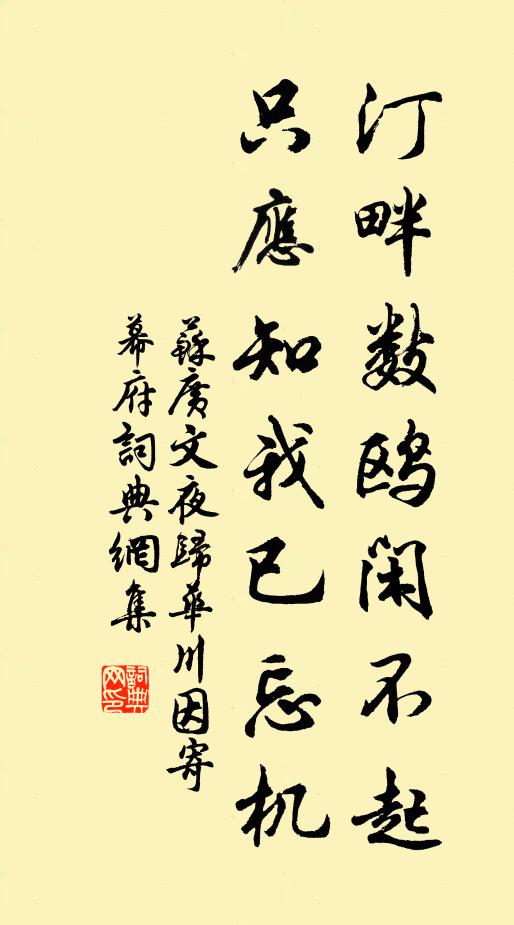 汀畔数鸥闲不起
只應知我已忘机
蘇廣文夜歸華川因寄
幕府詞典網集
詞典网印